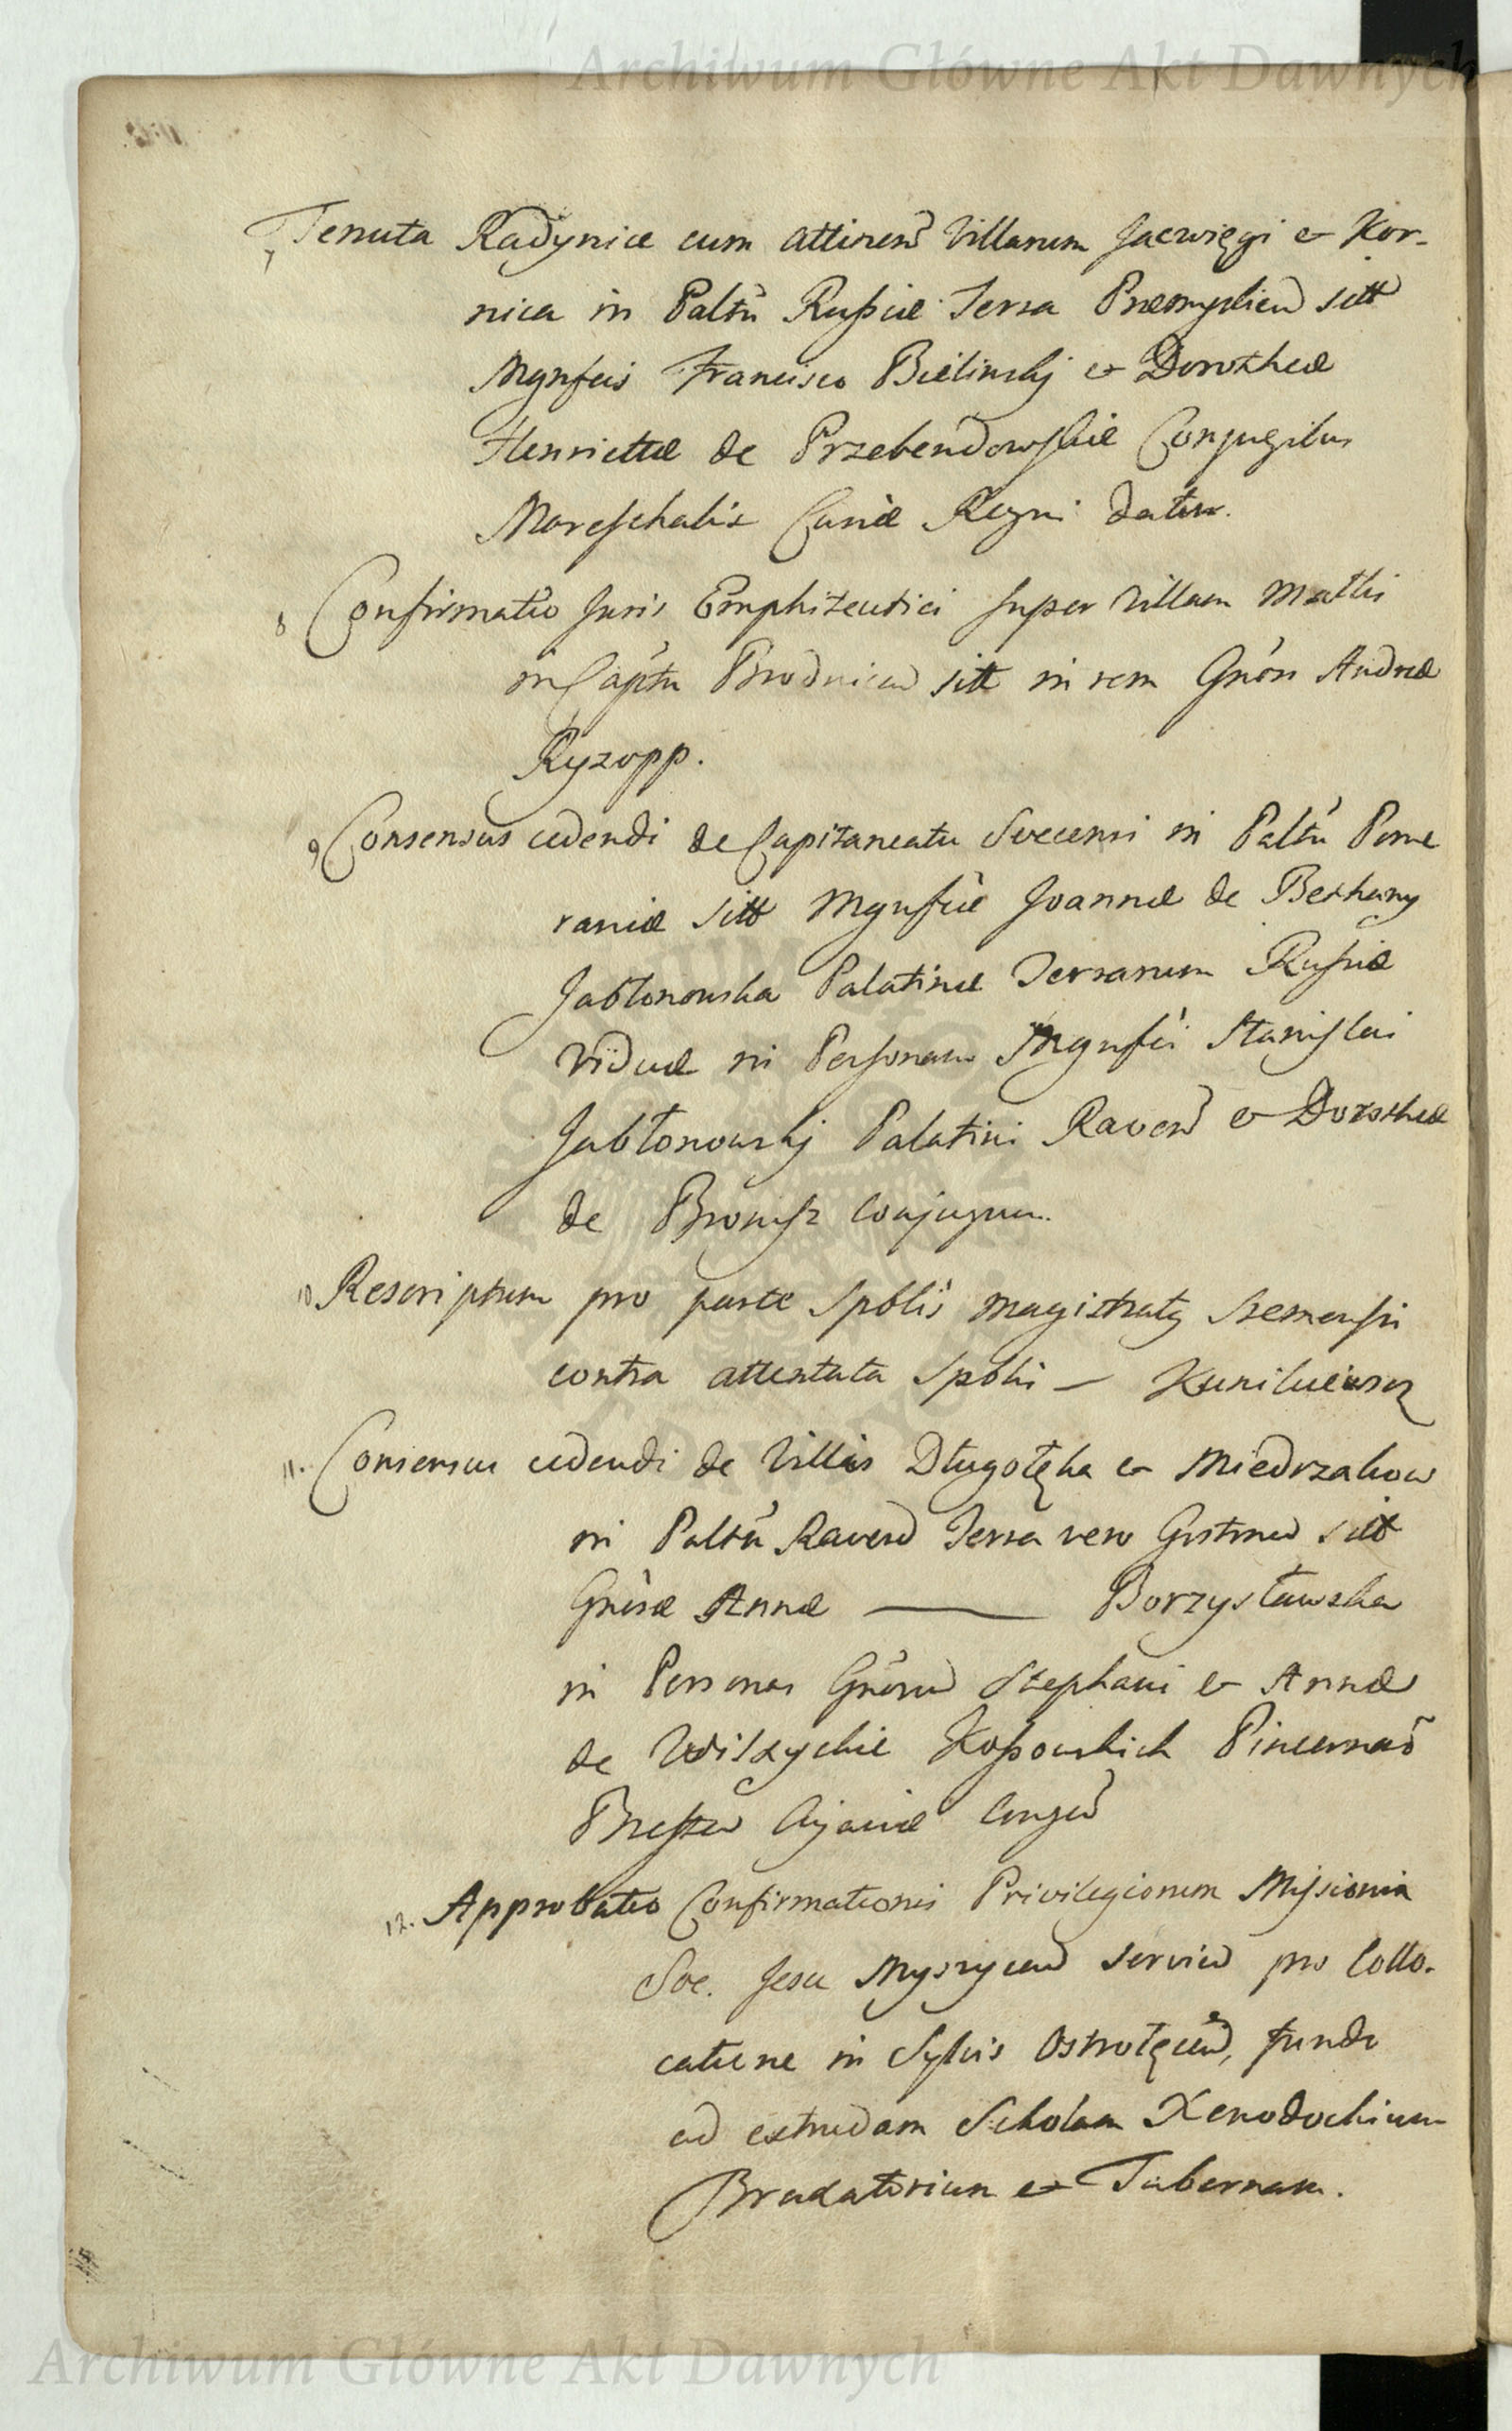 Archiwum Główne Akt Dawnych
7 Tenuta Radynicæ cum attinen Villarum Jacwięgi et Kor-
nica in Palttu Russiæ Terra Præmyslien sitt
Mgnfcis Francisco Bielinskj et Dorotheæ
Henriettæ de Przebendowskie Conjugibus
Mareschalis Curiæ Regni datur.
8 Confirmatio Juris Emphiteutici super Villam Malki
in Capttu Brodnicen sitt in rem Gnosi Andreæ
Ryzopp.
9 Consensus cedendi de Capitaneatu Svecensi in Palttu Pome
raniæ sitt Mgnfcæ Joannæ de Bethuny
Jabłonowska Palatinæ Terrarum Russiæ
Viduæ in Personam Mgnfci Stanislai
Jabłonowskj Palatini Raven et Dorotheæ
de Bronisz Conjugum.
10 Rescriptum pro parte Spblis Magistratg
contra attentata Spblis —
11. Consensus cedendi de Villis Długołęka et Miedrzakow
in Palttu Raven Terra vero Gostinen sitt
Gnosæ Annæ — Borzysławska
in Personas Gnosru Stephani et Annæ
de Wilxyckie Kossowskich Pincernaru
Brestен Cujaviæ Conju
12. Approbatio Confirmationis Privilegiorum Missionis
Soc. Jesu Myszycen servien pro Collo-
catione in Sylvis Ostrołęcen, fundo
ad extruedam Scholam Xenodochium
Braxatorium et Tabernam.
Archiwum Główne Akt Dawnych